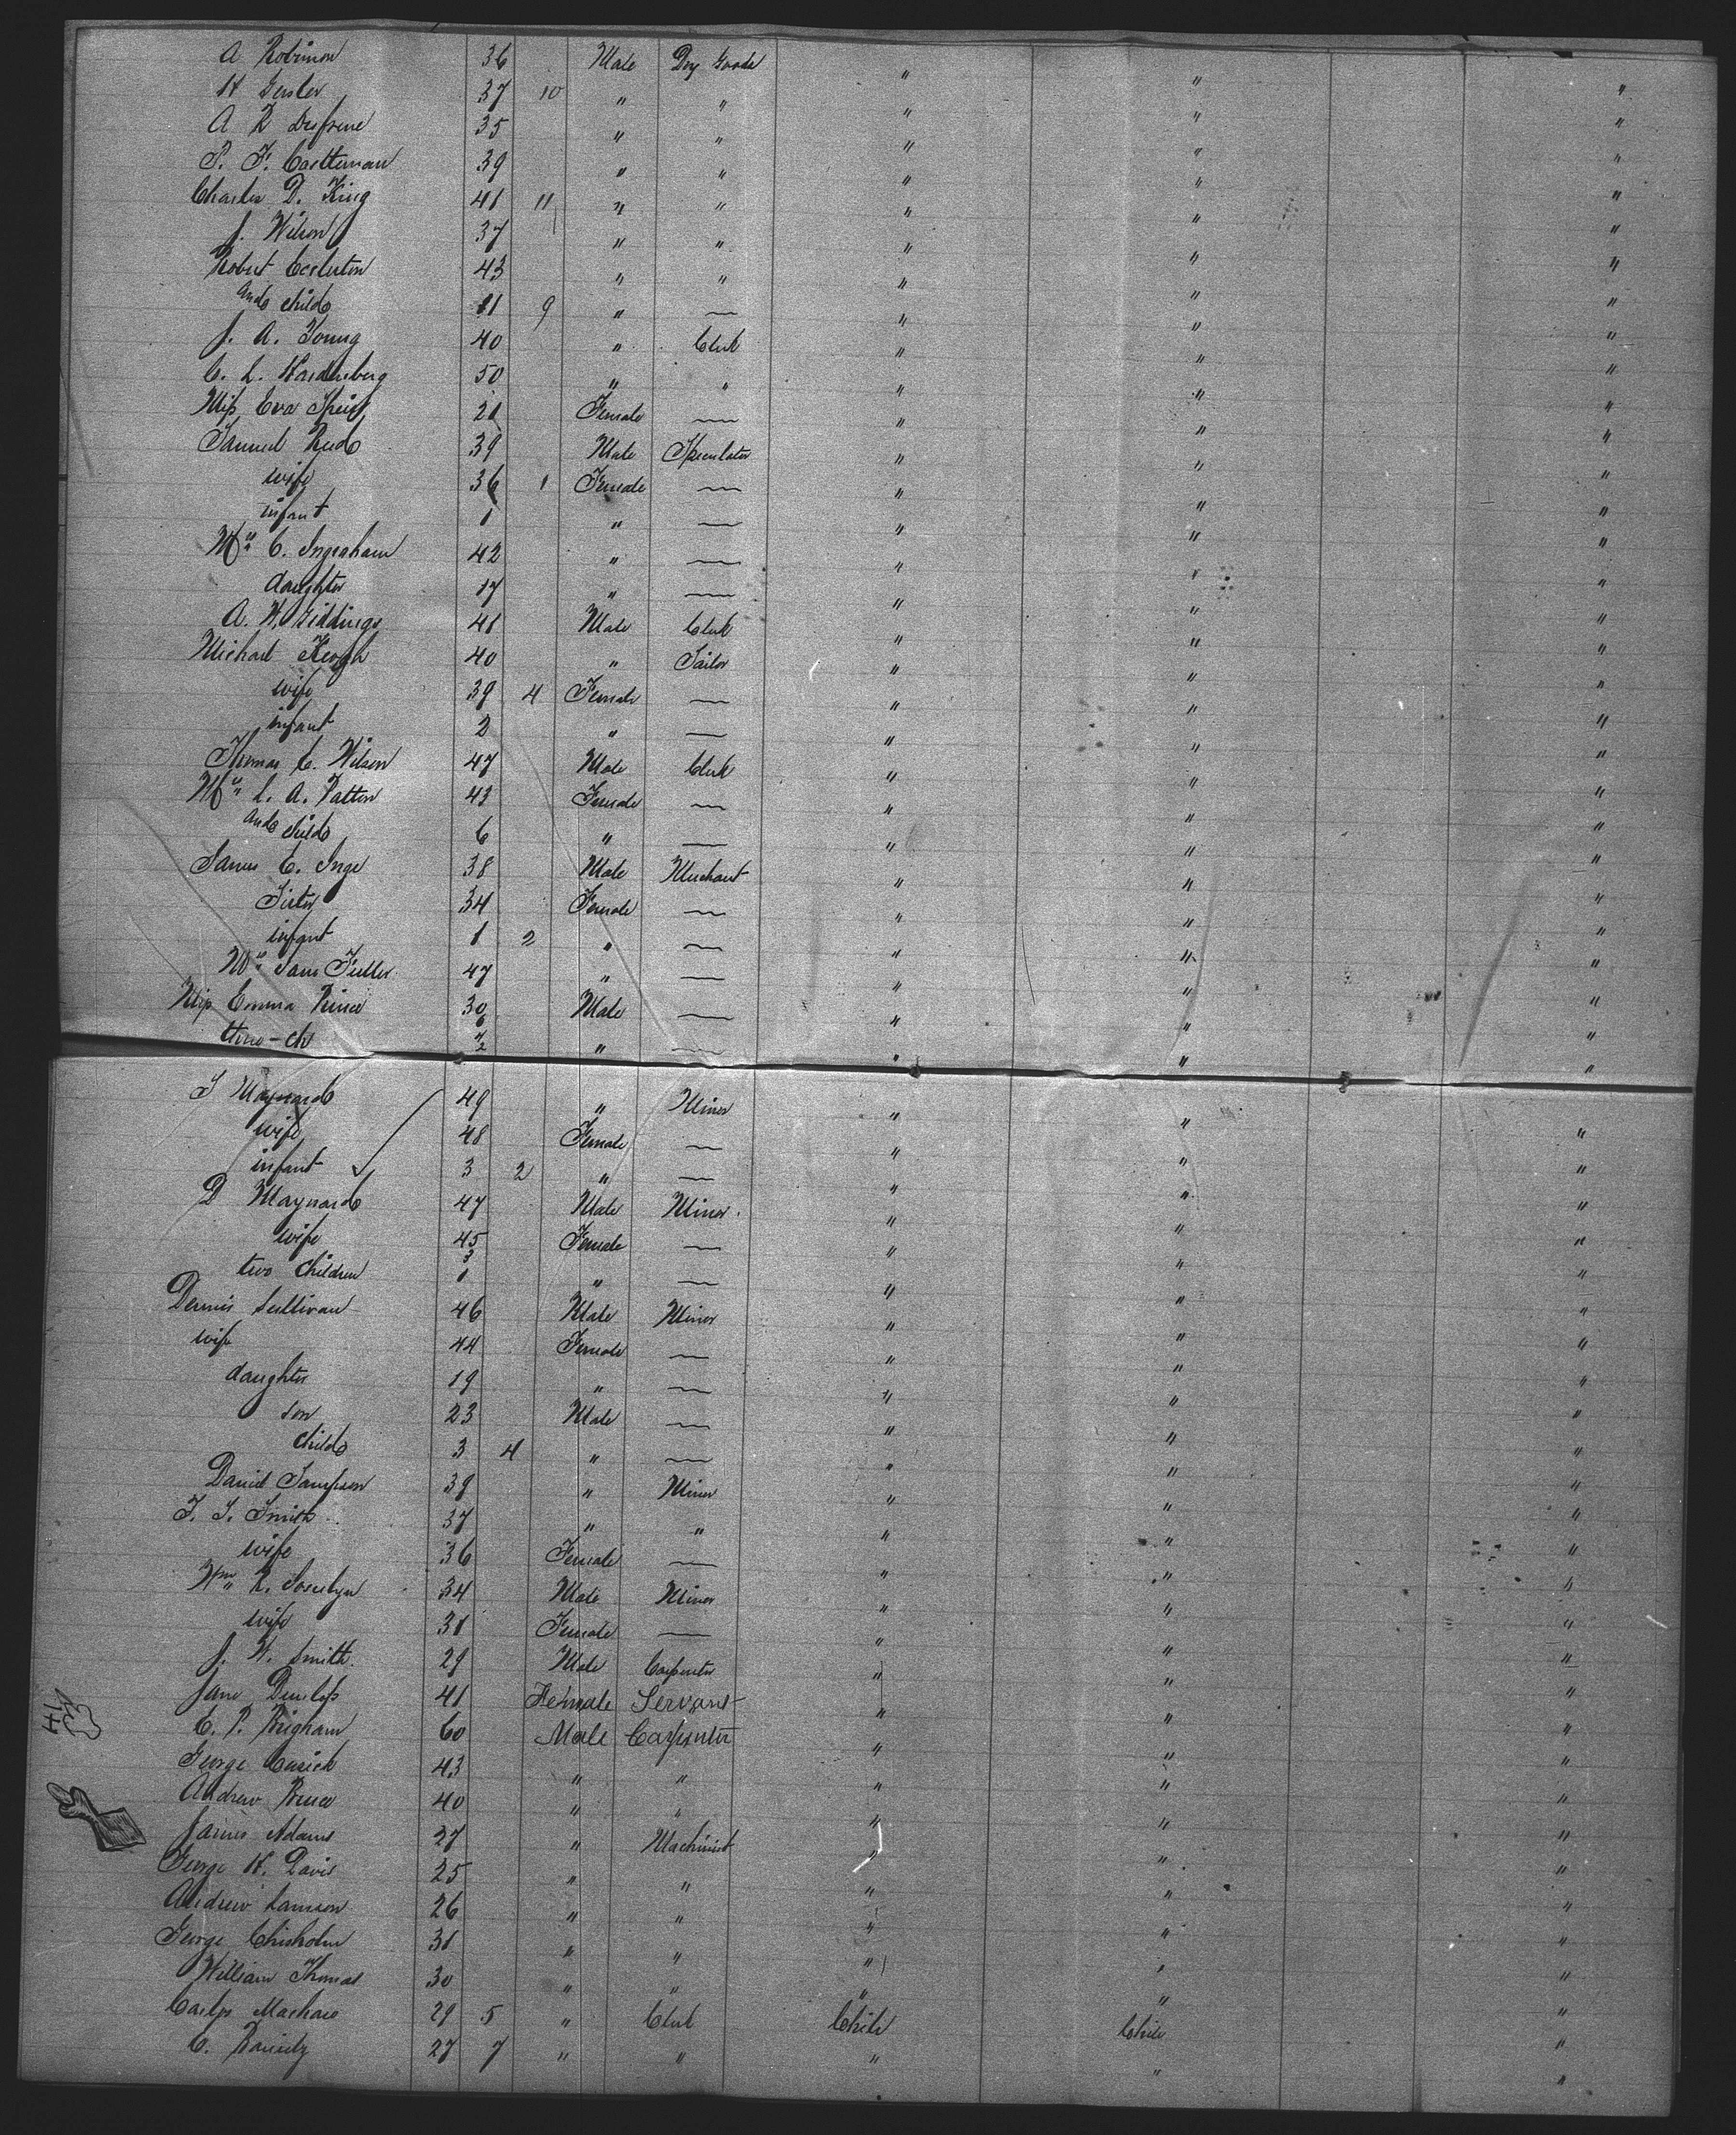 A Robinson 36 Male Dry Goods " " "
H Gensler 37 10 " " " " "
A R Dufrene 35 " " " " "
P. F. Castleman 39 " " " " "
Charles D. King 41 11 " " " " "
J. Wilson 37 " " " " "
Robert Eccleston 43 " " " " "
And child 11 9 " — " " "
J. A. Young 40 " Clerk " " "
C. L. Hardenberg 50 " " " " "
Miss Eva Speist 21 Female — " " "
Samuel Reed 39 Male Speculator " " "
wife 36 1 Female — " " "
infant 1 " — " " "
Mrs C. Ingraham 42 " — " " "
daughter 17 " — " " "
A. W. Giddings 41 Male Clerk " " "
Michael Keogh 40 " Sailor " " "
wife 39 4 Female — " " "
infant 2 " — " " "
Thomas C. Wilson 47 Male Clerk " " "
Mrs L. A. Patten 43 Female — " " "
And child 6 " — " " "
James C. Inge 38 Male Merchant " " "
Sister 34 Female — " " "
infant 1 2 " — " " "
Mrs Jane Fuller 47 " — " " "
Miss Emma 30 Male — " " "
two-ch 6 2 " — " " "
S Maynard 49 " Miner " " "
wife 48 Female — " " "
infant 3 2 " — " " "
D Maynard 47 Male Miner " " "
wife 45 Female — " " "
two children 3 1 " — " " "
Dennis Sullivan 46 Male Miner " " "
wife 44 Female — " " "
daughter 19 " — " " "
son 23 Male — " " "
child 3 4 " — " " "
David Sampson 39 " Miner " " "
T. S. Smith 37 " " " " "
wife 36 Female — " " "
Wm R. Josselyn 34 Male Miner " " "
wife 31 Female — " " "
J. W. Smith 29 Male Carpenter " " "
Jane Dunlop 41 Female Servant " " "
C. P. Brigham 60 Male Carpenter " " "
14
George Cusick 43 " " " " "
Andrew Bruce 40 " " " " "
James Adams 27 " Machinist " " "
George H. Davis 25 " " " " "
Andrew Lamson 26 " " " " "
George Chisholm 31 " " " " "
William Thomas 30 " " " " "
Carlos 29 5 " Clerk Chile Chile "
C. 27 7 " " " " "